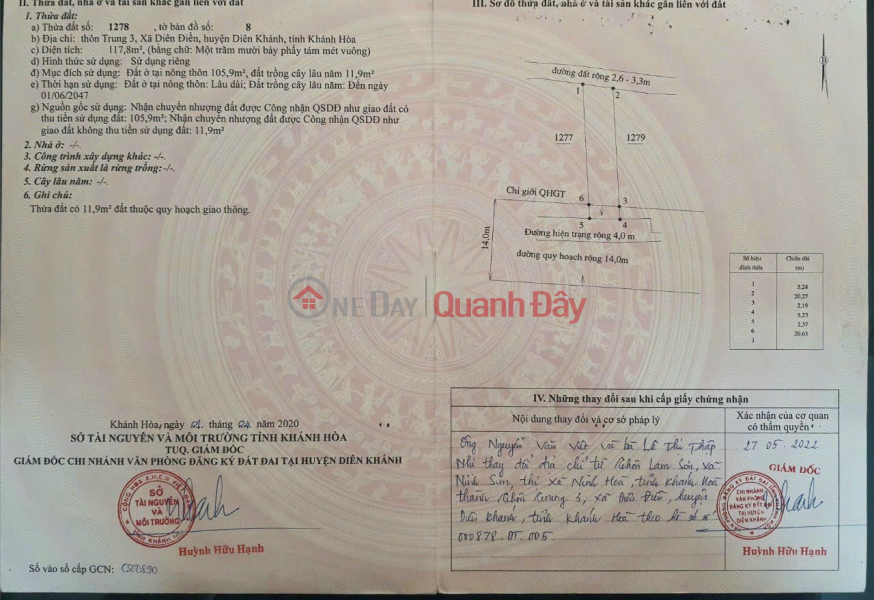 II. Thửa đất, nhà ở và tài sản khác gắn liền với đất
1. Thửa đất:
a) Thửa đất số: 1278 , tờ bản đồ số: 8
b) Địa chỉ: thôn Trung 3, Xã Diên Điền, huyện Diên Khánh, tỉnh Khánh Hòa
c) Diện tích: 117,8m², (bằng chữ: Một trăm mười bảy phẩy tám mét vuông)
d) Hình thức sử dụng: Sử dụng riêng
đ) Mục đích sử dụng: Đất ở tại nông thôn 105,9m², đất trồng cây lâu năm 11,9m²
e) Thời hạn sử dụng: Đất ở tại nông thôn: Lâu dài; Đất trồng cây lâu năm: Đến ngày
01/06/2047
g) Nguồn gốc sử dụng: Nhận chuyển nhượng đất được Công nhận QSDĐ như giao đất có
thu tiền sử dụng đất: 105,9m²; Nhận chuyển nhượng đất được Công nhận QSDĐ như
giao đất không thu tiền sử dụng đất: 11,9m²
2. Nhà ở: -/-
3. Công trình xây dựng khác: -/-.
4. Rừng sản xuất là rừng trồng: -/-.
5. Cây lâu năm: -/-
6. Ghi chú:
Thửa đất có 11,9m² đất thuộc quy hoạch giao thông.
Khánh Hòa, ngày 01 tháng 04 năm 2020
SỞ TÀI NGUYÊN VÀ MÔI TRƯỜNG TỈNH KHÁNH HÒA
TUQ. GIÁM ĐỐC
GIÁM ĐỐC CHI NHÁNH VĂN PHÒNG ĐĂNG KÝ ĐẤT ĐAI TẠI HUYỆN DIÊN KHÁNH
SỞ
TÀI NGUYÊN
VÀ
MÔI TRƯỜNG
TỈNH KHÁNH HÒA
Huỳnh Hữu Hạnh
Số vào sổ cấp GCN: CS00890
III. Sơ đồ thửa đất, nhà ở và tài sản khác gắn liền với đất
đường đất rộng 2,6 - 3,3m
1
2
1277
1279
Chỉ giới QHGT
6
3
5
4
14,0m
Đường hiện trạng rộng 4,0 m
đường quy hoạch rộng 14,0m
Số hiệu đỉnh thửa Chiều dài (m)
1
5,24
2
20,27
3
2,19
4
5,23
5
2,37
6
20,65
1
ONEDAY Quanh Đây
IV. Những thay đổi sau khi cấp giấy chứng nhận
Nội dung thay đổi và cơ sở pháp lý
Xác nhận của cơ quan
có thẩm quyền
Ông Nguyễn Văn Việt và bà Lê Thị Thấp
Nhi thay đổi địa chỉ từ thôn Lam Sơn, xã
Ninh Sim, thị xã Ninh Hoà, tỉnh Khánh Hoà
thành thôn Trung 3, xã Diên Điền, huyện
Diên Khánh, tỉnh Khánh Hoà theo hồ sơ số
000878.DT.005.
27 05 2022
GIÁM ĐỐC
CHI NHÁNH
VĂN PHÒNG
ĐĂNG KÝ ĐẤT ĐAI
TẠI HUYỆN
DIÊN KHÁNH
Huỳnh Hữu Hạnh